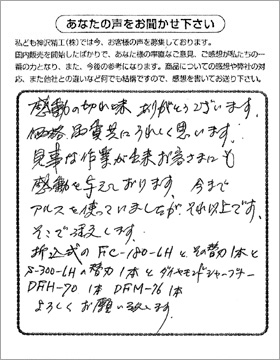 あなたの声をお聞かせ下さい
私ども神沢精工(株)では今、お客様の声を募集しております。
国内販売を開始したばかりで、あなた様の率直なご意見、ご感想が私たちの一
番の力となり、また、今後の参考になります。商品についての感想や弊社の対
応、また他社との違いなど何でも結構ですので、感想を書いてお送り下さい。
感動の切れ味 ありがとうございます。
価格、品質共にうれしく思います。
見事な作業が出来お客さまにも
感動を与えております。 今まで
アルスを使っていましたが、それ以上です。
そこで注文します。
折込式の FC-180-LH と、その替刃1本と
S-300-LHの替刃1本とダイヤモンドシャープナー
DFH-70 1本 DFM-76 1本
よろしくお願い致します。